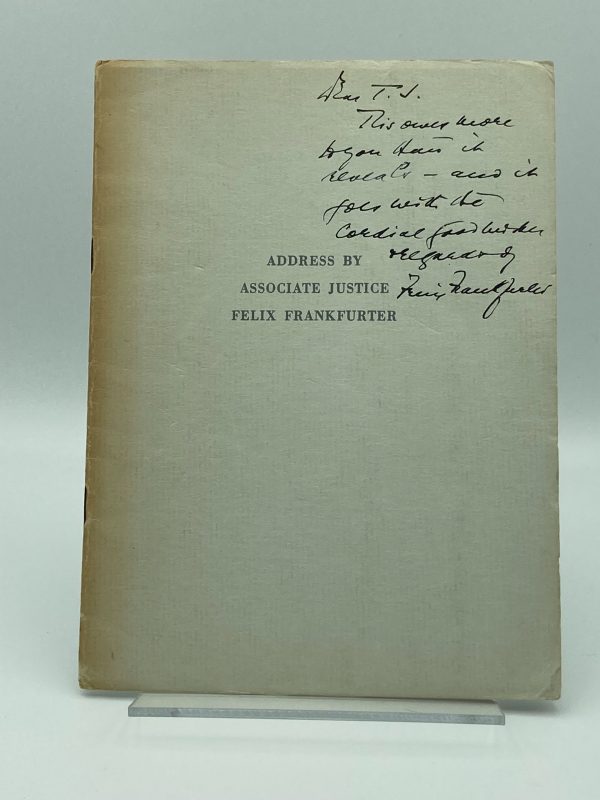 Dear T. J.
This owes more
to you than it
reveals – and it
goes with the
cordial good wishes
& regards of
Felix Frankfurter
ADDRESS BY
ASSOCIATE JUSTICE
FELIX FRANKFURTER